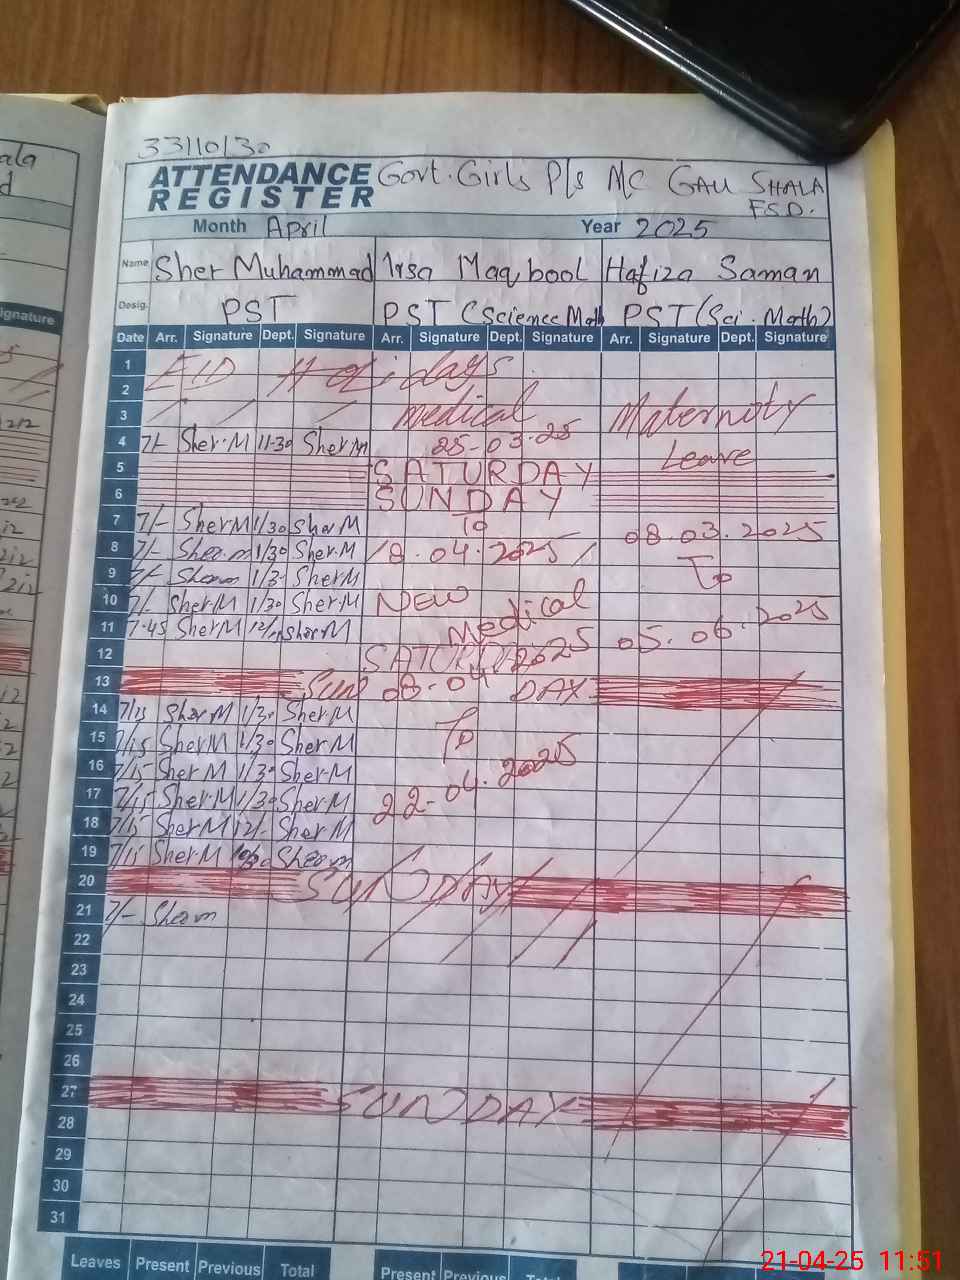 33110130
ATTENDANCE REGISTER Govt. Girls P/s MC GAU SHALA FSD.
Month April Year 2025
Name Sher Muhammad Irsa Maqbool Hafiza Saman
Desig. PST PST (Science Math PST (Sci. Math)
Date Arr. Signature Dept. Signature Arr. Signature Dept. Signature Arr. Signature Dept. Signature
1 EID Holidays
2
3 medical Maternity
4 7/- Sher.M 11-30 Sher M 25-03-25 Leave
5 SATURDAY
6 SUNDAY
7 7/- Sher M 1/30 Sher M To 08.03.2025
8 7/- Sherm 1/30 Sher.M 8.04.2025 To
9 7/- Sherm 1/3- Sher M
10 7/- Sher M 1/30 Sher M NEW Medical 05.06.2025
11 7.45 Sher M Sher M
12 SATURDAY
13 08-04-2025
14 7/15 Sher M 1/30 Sher M
15 7/15 Sher M 1/30 Sher M To
16 7/15 Sher M 1/30 Sher M
17 7/15 Sher M 1/30 Sher M 22-04.2025
18 7/15 Sher M 12/- Sher M
19 7/15 Sher M Sherm
20 SUNDAY
21 7/- Sherm
22
23
24
25
26
27 SUNDAY
28
29
30
31
Leaves Present Previous Total Present Previous Total
21-04-25 11:51